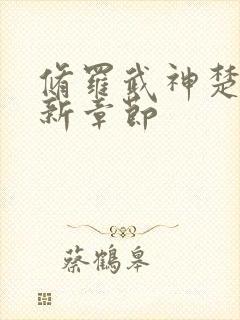 脩羅武神楚
新章節
蔡鶴皋